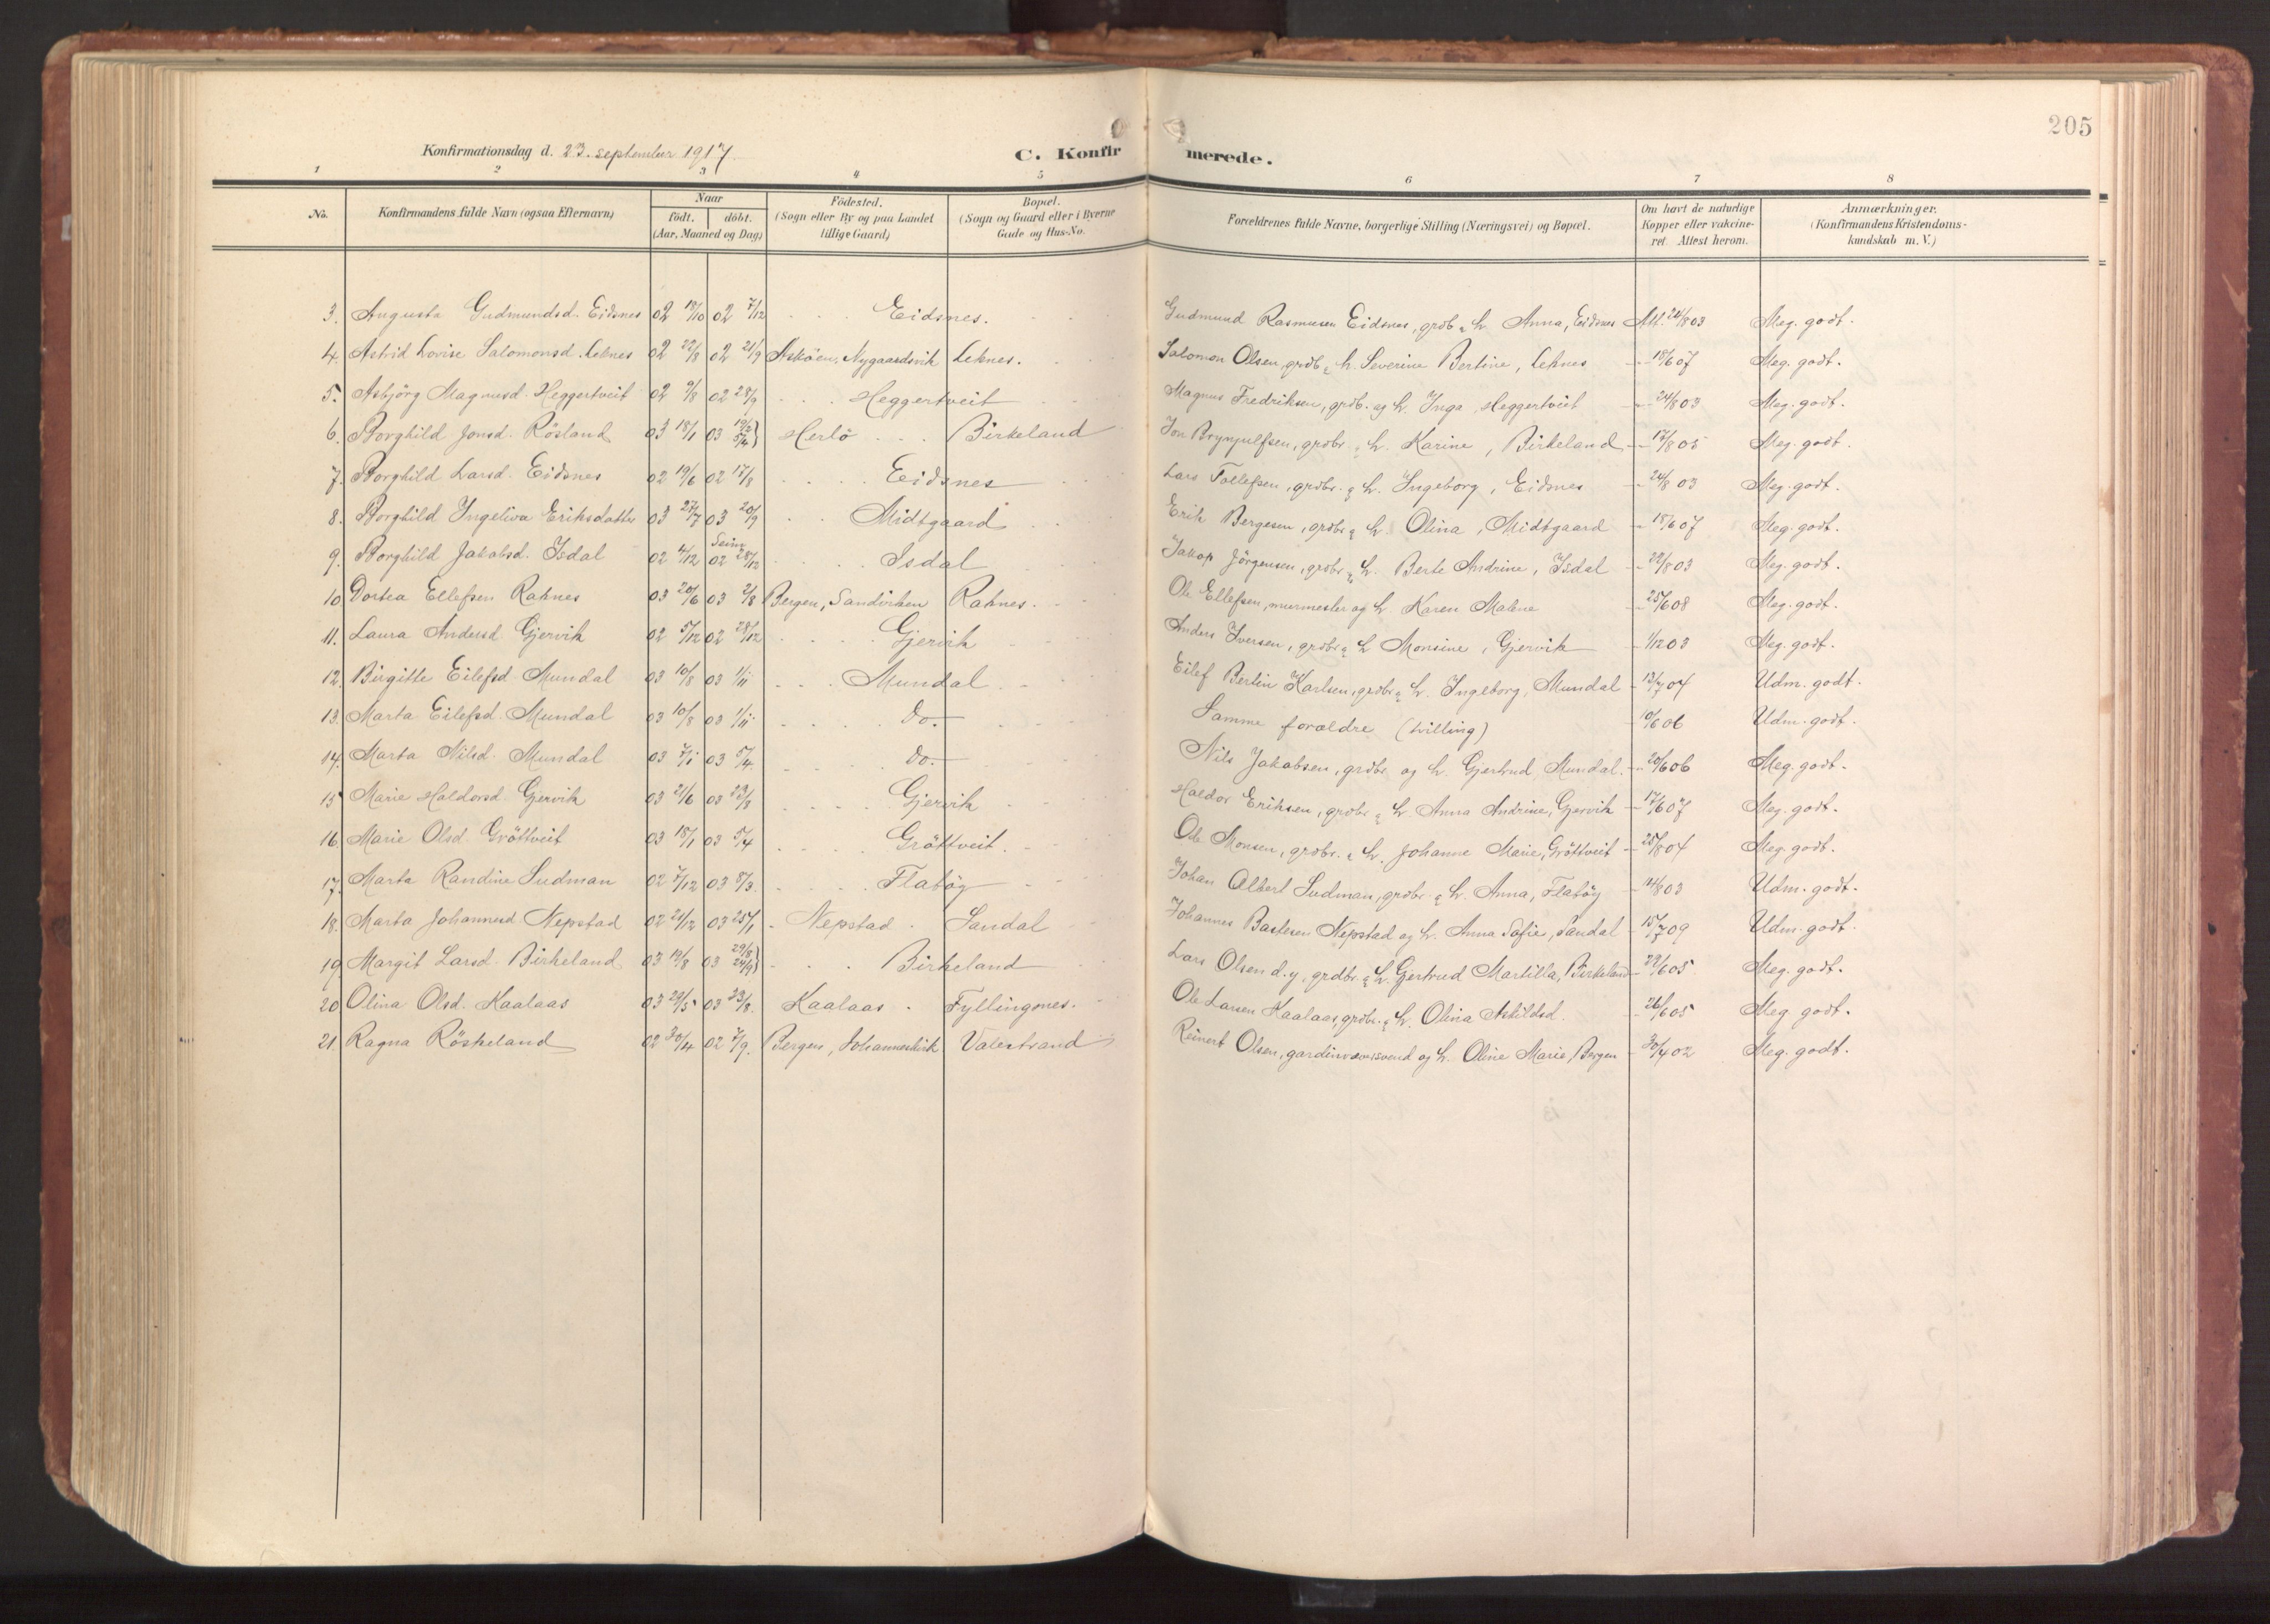 205
Konfirmationsdag d. 23. september 1917.
C. Konfirmerede.
1 2 3 4 5 6 7 8
No. Konfirmandens fulde Navn (ogsaa Efternavn) Naar født. døbt. (Aar, Maaned og Dag) Fødested. (Sogn eller By og paa Landet tillige Gaard) Bopæl. (Sogn og Gaard eller i Byerne Gade og Hus-No. Forældrenes fulde Navne, borgerlige Stilling (Næringsvei) og Bopæl. Om havt de naturlige Kopper eller vakcineret. Attest herom. Anmærkninger. (Konfirmandens Kristendomskundskab m. V.)
3. Augusta Gudmundsd. Eidsnes 02 18/10 02 7/12 Eidsnes. Gudmund Rasmusen Eidsnes, grdb & h. Anna, Eidsnes Att. 24/8 03 Meg. godt.
4. Astrid Lovise Salomonsd. Leknes 02 22/8 02 21/9 Askøen, Nygaardsvik Leknes. Salomon Olsen, grdb & h. Severine Bertine, Leknes - 18/6 07 Meg. godt.
5. Asbjörg Magnusd. Heggertveit 02 9/8 02 28/9 Heggertveit Magnus Fredriksen, grdb. og h. Inga, Heggertveit - 24/8 03 Meg. godt.
6. Borghild Jonsd. Rösland 03 18/1 03 19/2 5/4 } Herlö Birkeland Jon Brynjulfsen, grdbr. & h. Karine, Birkeland - 17/8 05 Meg. godt.
7. Borghild Larsd. Eidsnes 02 19/6 02 17/8 Eidsnes Lars Tollefsen, grdbr. & h. Ingeborg, Eidsnes - 24/8 03 Meg. godt.
8. Borghild Ingeliva Eriksdatter 03 27/7 03 20/9 Midtgaard Erik Bergesen, grdbr & h. Olina, Midtgaard - 18/6 07 Meg. godt.
9. Borghild Jakobsd. Isdal 02 4/12 Seim 02 28/12 Isdal Jakop Jörgensen, grdbr & h. Berte Andrine, Isdal - 22/8 03 Meg. godt.
10. Dortea Ellefsen Raknes 03 20/6 03 2/8 Bergen, Sandviken Raknes. Ole Ellefsen, murmester og h. Karen Malene - 25/6 08 Meg. godt.
11. Laura Andersd. Gjervik 02 5/12 02 28/12 Gjervik Anders Iversen, grdbr & h. Monsine, Gjervik - 1/12 03 Meg. godt.
12. Birgitte Eilefsd. Mundal 03 10/8 03 1/11 Mundal Eilef Bertin Karlsen, grdbr & h. Ingeborg, Mundal - 13/7 04 Udm. godt.
13. Marta Eilefsd. Mundal 03 10/8 03 1/11 do. Samme forældre (tvilling) - 10/6 06 Udm. godt.
14. Marta Nilsd. Mundal 03 7/1 03 5/4 do. Nils Jakobsen, grdbr og h. Gjertrud, Mundal. - 20/6 06 Meg. godt.
15 Marie Haldorsd. Gjervik 03 21/6 03 23/8 Gjervik Haldor Eriksen, grdbr & h. Anna Andrine, Gjervik - 17/6 07 Meg. godt.
16. Marie Olsd. Gröttveit 03 18/1 03 5/4 Gröttveit. Ole Monsen, grdbr. & h. Johanne Marie, Gröttveit - 25/8 04 Meg. godt.
17. Marta Randine Sudman 02 7/12 03 8/3. Flatöy Johan Albert Sudman, grdbr & h. Anna, Flatöy - 14/8 03 Udm. godt.
18. Marta Johannesd Nepstad 02 21/12 03 25/1 Nepstad Sandal Johannes Bastesen Nepstad og h. Anna Sofie, Sandal - 15/7 09 Udm. godt.
19 Margit Larsd. Birkeland 03 19/8 03 29/8 24/9 } Birkeland Lars Olsen d.y. grdbr. & h. Gjertrud Martilla, Birkeland - 29/6 05 Meg. godt.
20. Olina Olsd. Kaalaas 03 29/5 03 23/8. Kaalaas Fyllingsnes. Ole Larsen Kaalaas, grdbr. & h. Olina Askildsd. - 26/6 05 Meg. godt.
21. Ragna Röskeland 02 30/4 02 7/9. Bergen, Johanneskirk Valestrand Reinert Olsen, gardinvæversvend og h. Oline Marie, Bergen - 30/4 02 Meg. godt.